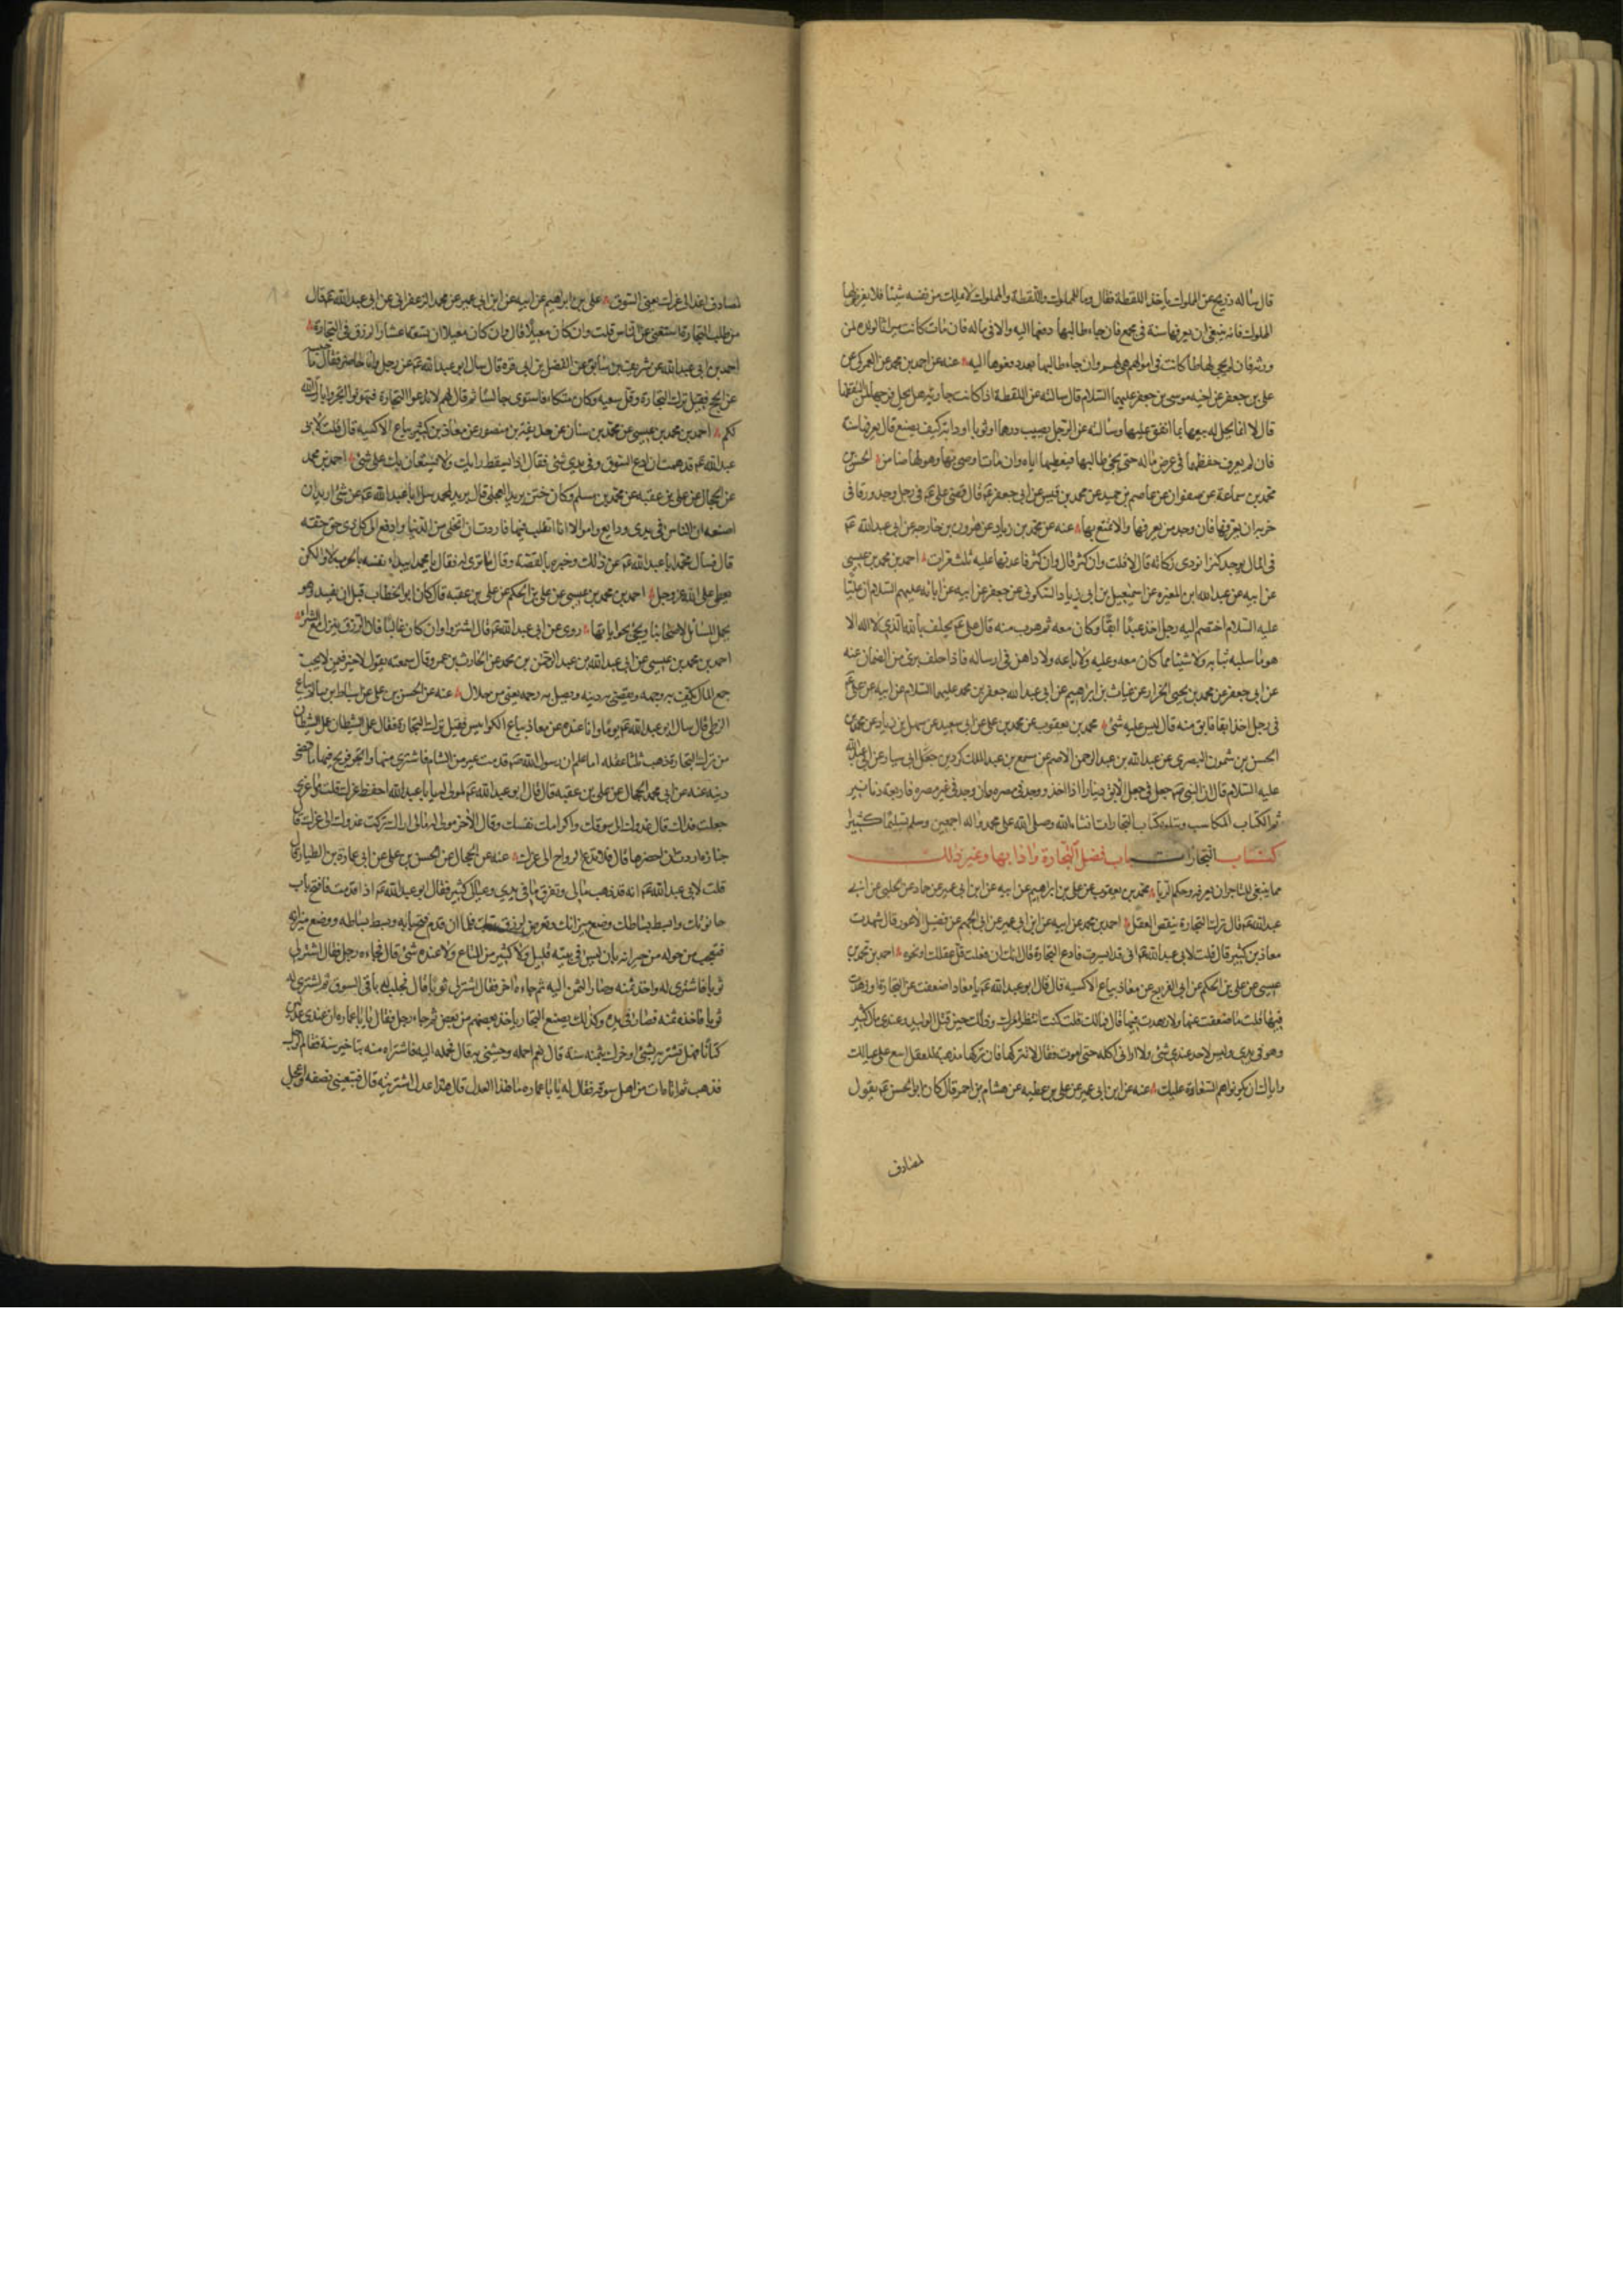 قال ساله ذريح عن المملوك ياخذ اللقطة فقال وما للمملوك واللقطة والمملوك لا يملك من نفسه شيئا فلا يعرض لها
المملوك فانه ينبغي ان يعرفها سنة في مجمع فان جاء طالبها دفعها اليه والا في ماله فان مات كانت ميراثا لولده ولمن
ورثه فان لم يجئ لها طالب كانت في اموالهم هي لهم وان جاء طالبها بعد دفعوها اليه عنه عن احمد بن محمد عن العمركي عن
علي بن جعفر عن اخيه موسى بن جعفر عليهما السلام قال سالته عن اللقطة اذا كانت جارية هل يحل فرجها لمن التقطها
قال لا انما يحل له بيعها بما انفق عليها وسالته عن الرجل يصيب درهما او ثوبا او دابة كيف يصنع قال يعرفها سنة
فان لم يعرف حفظها في عرض ماله حتى يجئ طالبها فيعطيها اياه وان مات اوصى بها وهو لها ضامن الحسن بن
محمد بن سماعة عن صفوان عن عاصم بن حميد عن محمد بن قيس عن ابي جعفر ع قال قضى علي ع في رجل وجد ورقا في
خربة ان يعرفها فان وجد من يعرفها والا تمتع بها عنه عن محمد بن زياد عن هرون بن خارجه عن ابي عبد الله ع
في المال يوجد كنزا نودي زكاته قال لا قلت وان كثر قال وان كثر فاعدتها عليه ثلث مرات احمد بن محمد بن عيسى
عن ابيه عن عبد الله ابن المغيره عن اسمعيل بن ابي زياد السكوني عن جعفر عن ابيه عن ابائه عليهم السلام ان عليا
عليه السلام اختصم اليه رجل اخذ عبدا ابقا وكان معه ثم هرب منه قال علي ع يحلف بالله الذي لا اله الا
هو ما سلبه ثيابه ولا شيئا مما كان معه وعليه ولا باعه ولا داهن في ارساله فاذا حلف برئ من الضمان عنه
عن ابي جعفر عن محمد بن يحيى الخزاز عن غياث بن ابراهيم عن ابي عبد الله جعفر بن محمد عليهما السلام عن ابيه عن علي ع
في رجل اخذ ابقا فابق منه قال ليس عليه شئ محمد بن يعقوب عن محمد بن علي عن ابي سعيد عن سهل بن زياد عن محمد بن
الحسن بن شمون البصري عن عبد الله بن عبد الرحمن الاصم عن مسمع بن عبد الملك كردين ابي سيار عن ابي عبد الله
عليه السلام قال ان النبي ص جعل في جعل الابق دينارا اذا اخذ ووجد في مصره وان وجد في غير مصره فاربعة دنانير
تم الكتاب المكاسب ويتلوه كتاب التجارات انشاء الله وصلى الله على محمد واله اجمعين وسلم تسليما كثيرا
كتاب التجارات باب فضل التجارة وادابها وغير ذلك
مما ينبغي للتاجر ان يعرفه وحكم الربا محمد بن يعقوب عن علي بن ابراهيم عن ابيه عن ابن ابي عمير عن حماد عن الحلبي عن ابي
عبد الله ع قال ترك التجارة ينقص العقل احمد بن محمد عن ابيه عن ابن ابي عمير عن ابي الجهم عن فضيل الاعور قال شهدت
معاذ بن كثير قال قلت لابي عبد الله ع اني قد ايسرت فادع التجارة فقال انك ان فعلت قل عقلك او نحوه احمد بن محمد بن
عيسى عن علي بن الحكم عن ابي الفرج عن معاذ بياع الاكسيه قال قال ابو عبد الله ع يا معاذ اضعفت عن التجارة او زهدت
فيها قلت ما ضعفت عنها ولا زهدت فيها قال فمالك قلت كنت انتظر امرك وذلك حين قتل الوليد وعندي مال كثير
وهو في يدي وليس لاحد عندي شئ ولا اراني اكله حتى اموت فقال لا تتركها فان تركها مذهبة للعقل اسع على عيالك
واياك ان يكونوا هم السعاة عليك عنه عن ابن ابي عمير عن علي بن عطيه عن هشام بن احمر قال كان ابو الحسن ع يقول
لمصادف
لمصادف اغد الى عزك يعني السوق علي بن ابراهيم عن ابيه عن ابن ابي عمير عن محمد الزعفراني عن ابي عبد الله ع قال
من طلب التجارة استغنى عن الناس قلت وان كان معيلا قال وان كان معيلا ان تسعة اعشار الرزق في التجارة
احمد بن ابي عبد الله عن شريف بن سابق عن الفضل بن ابي قرة قال سال ابو عبد الله ع عن رجل وانا حاضر فقال ما حبسه
عن الحج فقيل ترك التجارة وقل سعيه وكان متكاء فاستوى جالسا ثم قال لهم لا تدعوا التجارة فتهونوا اتجروا بارك الله
لكم احمد بن محمد بن عيسى عن محمد بن سنان عن حذيفة بن منصور عن معاذ بن كثير بياع الاكسيه قال قلت لابي
عبد الله ع قد هممت ان ادع السوق وفي يدي شئ فقال اذا يسقط رايك ولا يستعان بك على شئ احمد بن محمد
عن الحجال عن علي بن عقبه عن محمد بن مسلم وكان ختن بريد العجلي قال بريد لمحمد سل ابا عبد الله ع عن شئ اريد ان
اصنعه ان للناس في يدي ودايع واموالا انا اتقلب فيها فاردت ان اتخلى من الدنيا وادفع الى كل ذي حق حقه
قال فسال محمد ابا عبد الله ع عن ذلك وخبره بالقصة وقال ما ترى له فقال يا محمد ايبدأ نفسه بالحرب لا ولكن
يعطي على الله عز وجل احمد بن محمد بن عيسى عن علي بن الحكم عن علي بن عقبه قال كان ابو الخطاب قبل ان يفسد وهو
يحمل المسائل لاصحابنا ويجئ بجواباتها روى عن ابي عبد الله ع قال اشتروا وان كان غاليا فان الرزق ينزل مع الشراء
احمد بن محمد بن عيسى عن ابي عبد الله بن عبد الرحمن بن محمد عن الحارث بن عمرو قال سمعته يقول لا خير فيمن لا يحب
جمع المال يكف به وجهه ويقضي به دينه ويصل به رحمه يعني من حلال عنه عن الحسن بن علي عن اسباط بن سالم بياع
الزطي قال سال ابو عبد الله ع يوما وانا عنده عن معاذ بياع الكرابيس فقيل ترك التجارة فقال عمل الشيطان عمل الشيطان
من ترك التجارة ذهب ثلثا عقله اما علم ان رسول الله ص قدمت عير من الشام فاشترى منها واتجر فربح فيها ما قضى
دينه عنه عن ابي محمد الحجال عن علي بن عقبه قال قال ابو عبد الله ع لمولى له يا عبد الله احفظ عزك قلت وما عزي
جعلت فداك قال غدوك الى سوقك واكرامك نفسك وقال لاخر مولى له مالي اراك تركت غدوك الى عزك قال
جنازة اردت ان احضرها قال فلا تدع الرواح الى عزك عنه عن الحجال عن الحسن بن علي عن ابي عمارة بن الطيار قال
قلت لابي عبد الله ع انه قد ذهب مالي وتفرق ما في يدي وعيالي كثير فقال ابو عبد الله ع اذا قدمت فافتح باب
حانوتك وابسط بساطك وضع ميزانك وتعرض لرزق ربك فلما ان قدم فتح بابه وبسط بساطه ووضع ميزانه
فتعجب من حوله من جيرانه بان ليس في بيته قليل ولا كثير من المتاع ولا عنده شئ قال فجاءه رجل فقال اشتر لي
ثوبا فاشترى له واخذ ثمنه وصار الثمن اليه ثم جاءه اخر فقال اشتر لي ثوبا قال فجلب له باقي السوق ثم اشترى له
ثوبا فاخذ ثمنه فصار في يده وكذلك يصنع التجار ياخذ بعضهم من بعض ثم جاء رجل فقال يا ابا عماره ان عندي عدلين
كتانا فهل تشتريه بشئ واخرك بثمنه سنة قال نعم احمله وجئني به قال فحمله اليه فاشتراه منه بتاخير سنة فقام الرجل
فذهب ثم اتاه ات من اهل سوقه فقال له يا ابا عماره ما هذا العدل قال هذا عدل اشتريته قال فتبيعني نصفه واعجل